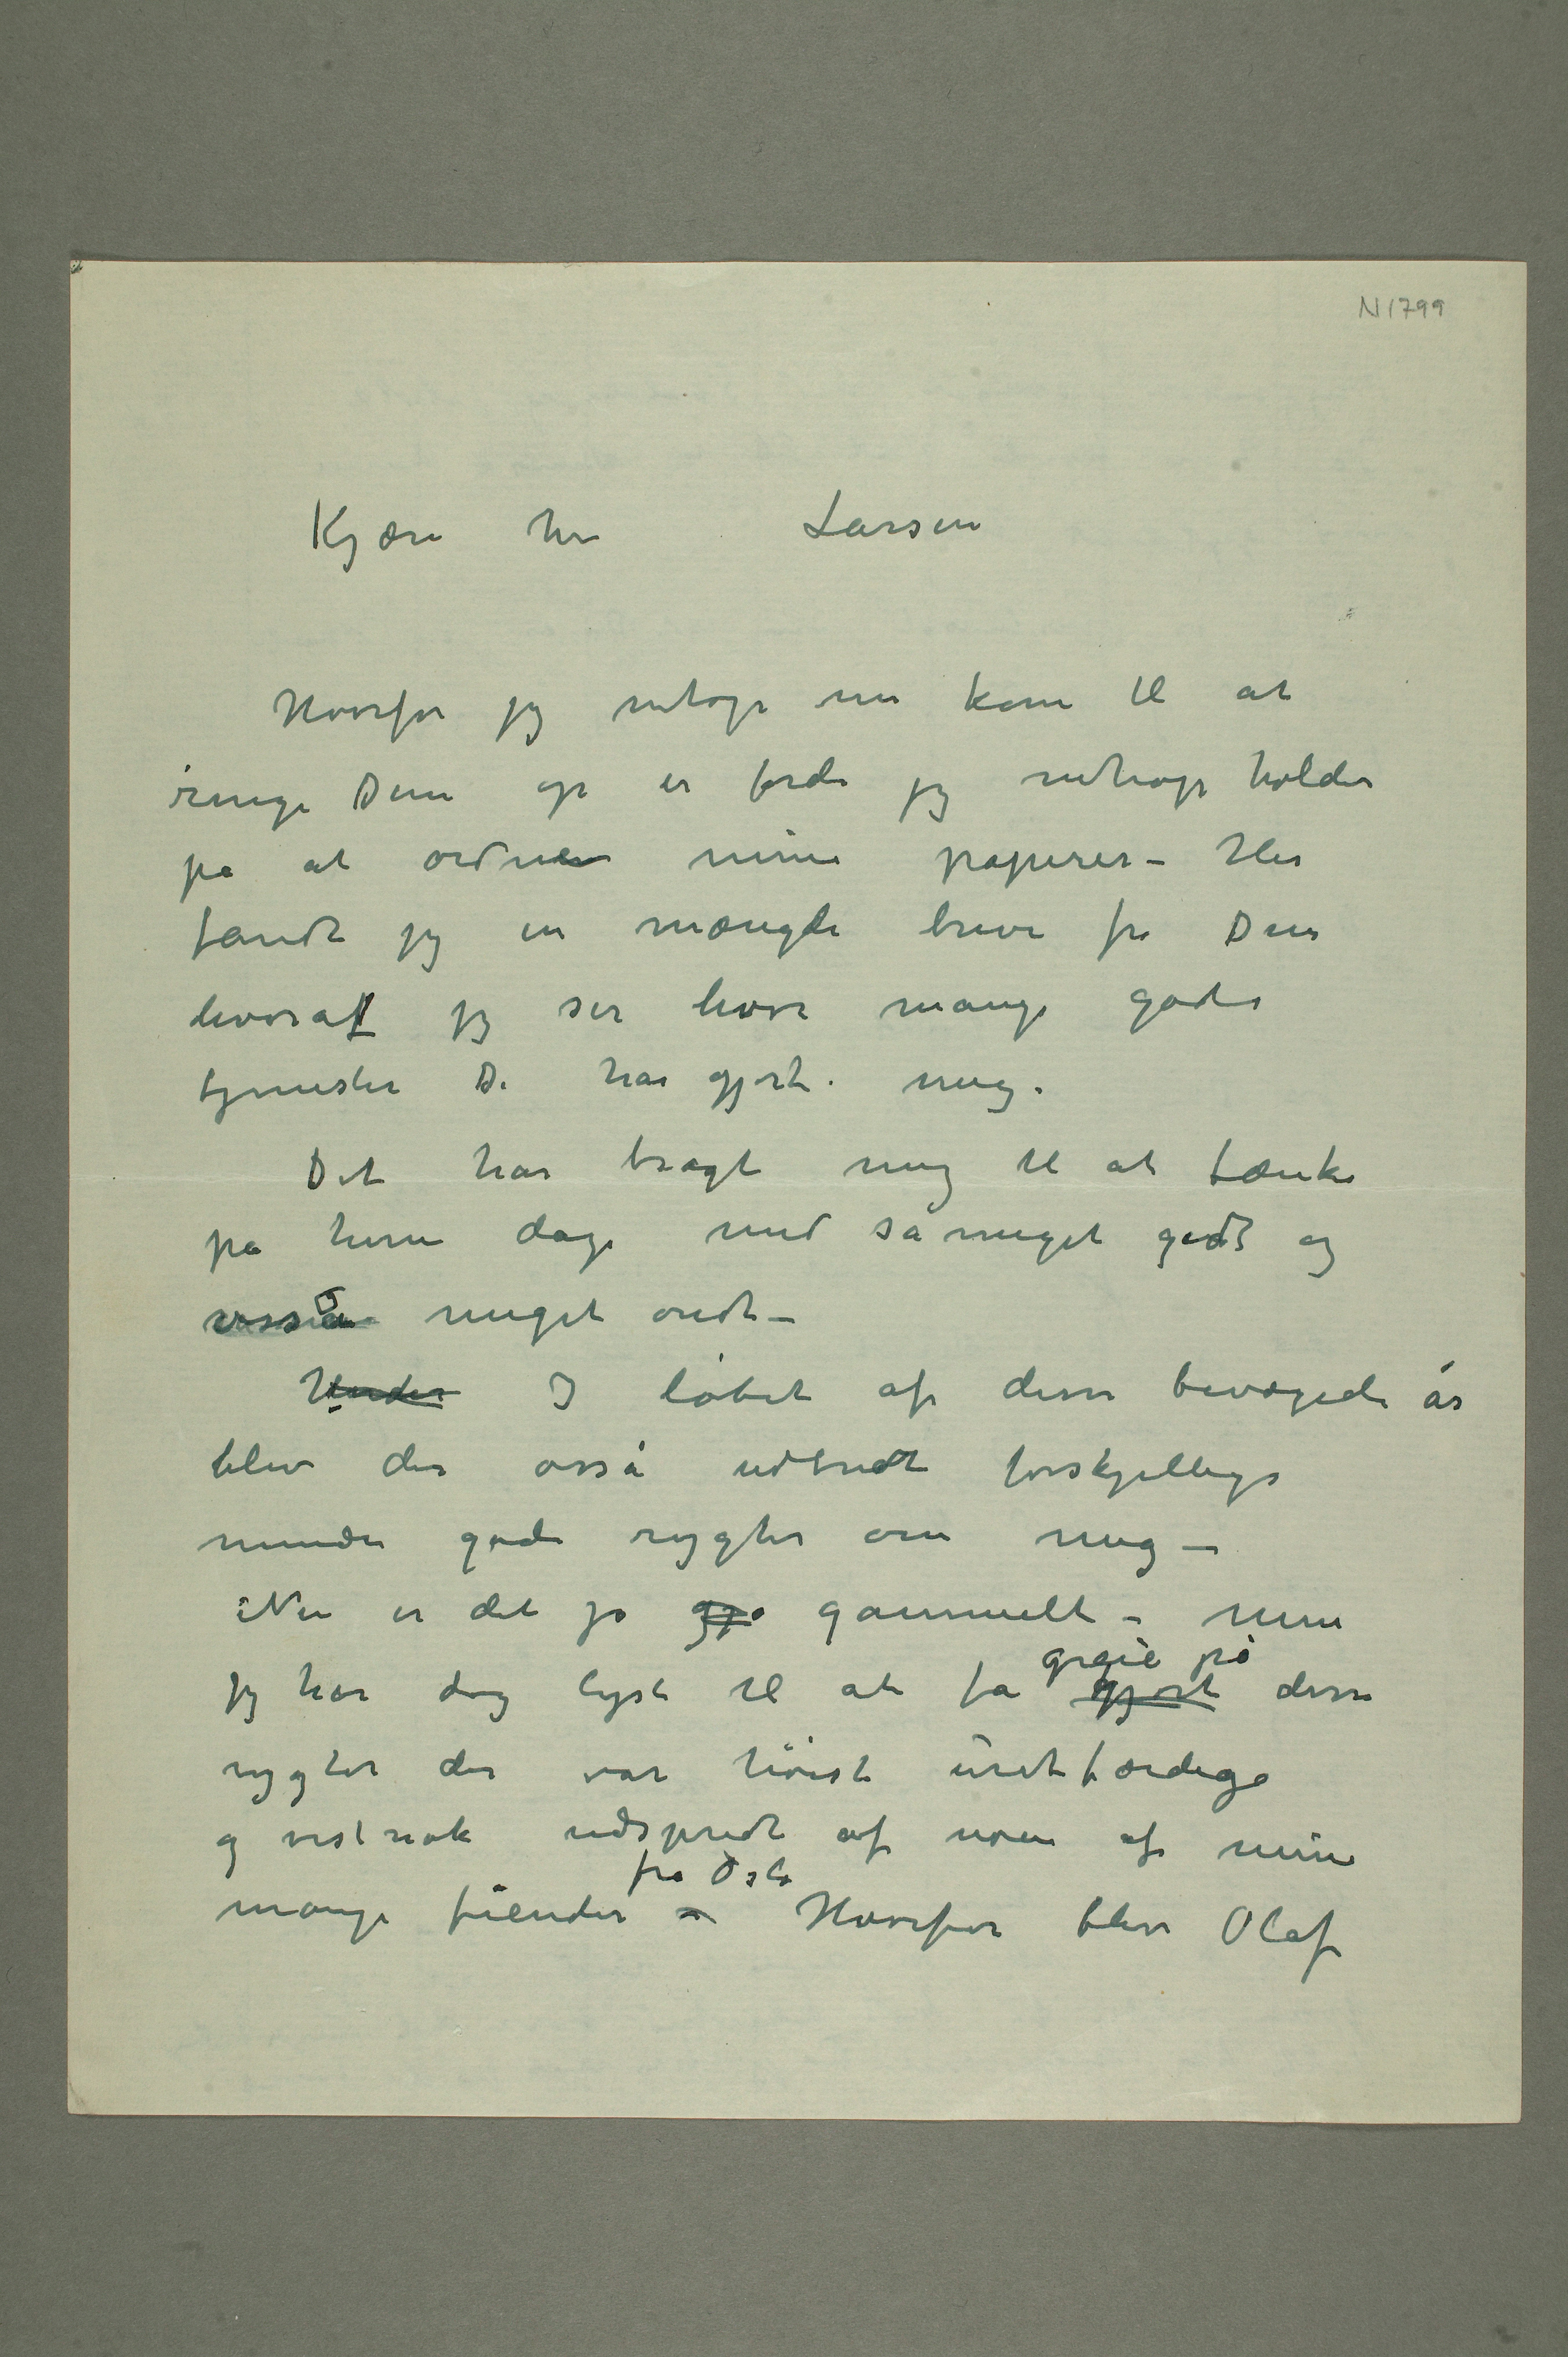 N 1799
Kjære hr Larsen
Hvorfor jeg netop nu kom til at
ringe Dem op er fordi jeg netop holder
på at ordne mine papirer – Her
fandt jeg en mængde breve fra Dem
hvoraf jeg ser hvor mange gode
tjenester De har gjort mig.
Det har bragt mig til at tænke
på hine dage med så meget godt og
så meget ondt –
Under I løbet af disse bevægede år
blev der osså udbredt forskjellige
mindre gode rygter om mig –
Nu er det jo gje gammelt – men
jeg har dog lyst til at få gjort disse
greie på
rygter der var høist uretfærdige
og vistnok udspredt af noen af mine
fra Oslo
mange fiender – Hvorfor blev Olaf